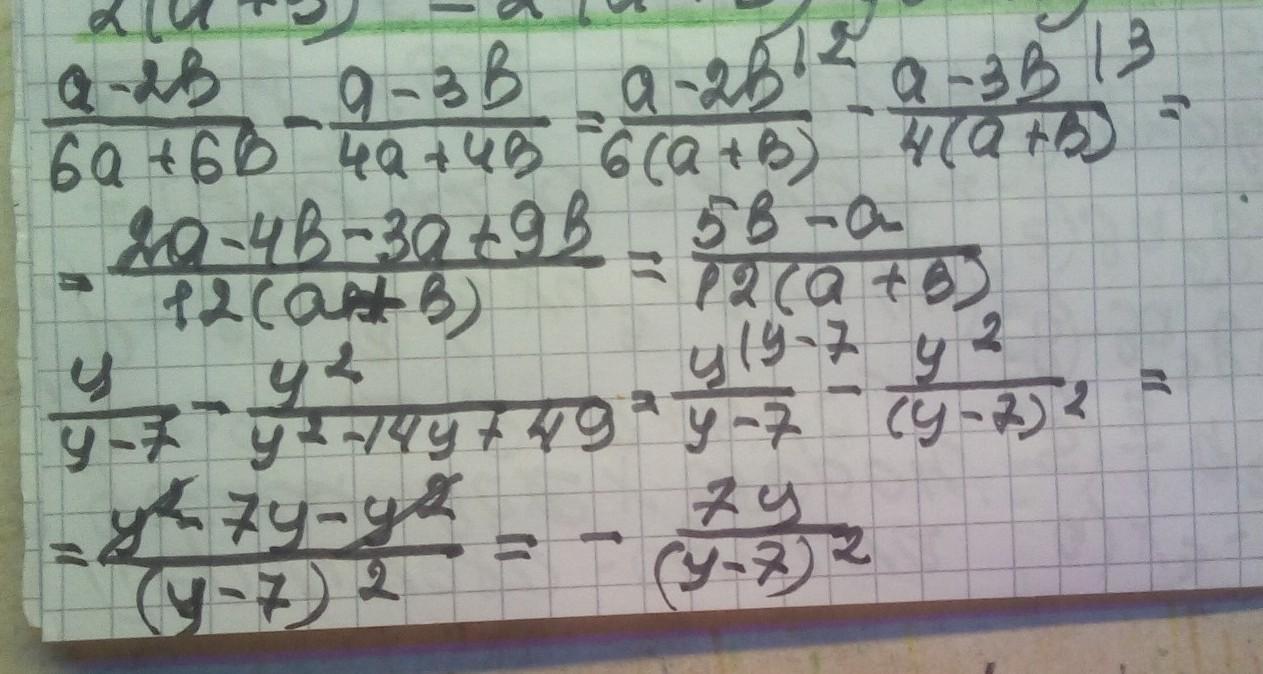 (a-2в)/(6a+6в) - (a-3в)/(4a+4в) = (a-2в)/(6(a+в)) |2 - (a-3в)/(4(a+в)) |3 =
= (2a-4в-3a+9в)/(12(a+в)) = (5в-a)/(12(a+в))
y/(y-7) - y²/(y²-14y+49) = y/(y-7) |y-7 - y²/(y-7)² =
= (y²-7y-y²)/(y-7)² = - 7y/(y-7)²